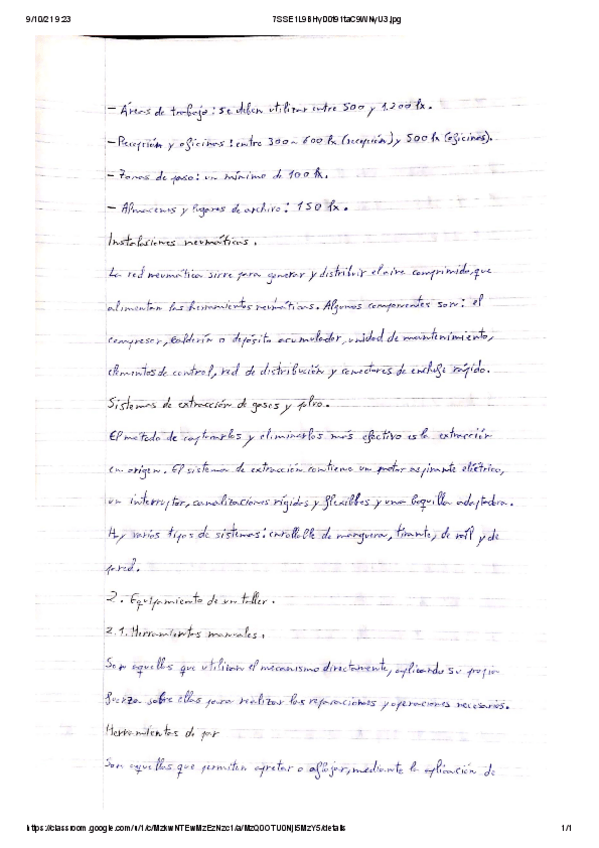 9/10/21 9:23
7SSE1L9BHyD0f91taC9WNyU3.jpg
- Áreas de trabajo: se deben utilizar entre 500 y 1.200 lx.
- Recepción y oficinas: entre 300 a 600 lx (recepción) y 500 lx (oficinas).
- Zonas de paso: un mínimo de 100 lx.
- Almacenes y lugares de archivo: 150 lx.
Instalaciones neumáticas.
La red neumática sirve para generar y distribuir el aire comprimido, que
alimentan las herramientas neumáticas. Algunos componentes son: el
compresor, calderín o depósito acumulador, unidad de mantenimiento,
elementos de control, red de distribución y conectores de enchufe rápido.
Sistemas de extracción de gases y polvo.
El método de captarlos y eliminarlos más efectivo es la extracción
en origen. El sistema de extracción contiene un motor aspirante eléctrico,
un interruptor, canalizaciones rígidas y flexibles y una boquilla adaptadora.
Hay varios tipos de sistemas: enrollable de manguera, tirante, de raíl y de
pared.
2. Equipamiento de un taller.
2.1. Herramientas manuales.
Son aquellas que utilizan el mecanismo directamente, aplicando su propia
fuerza sobre ellas para realizar las reparaciones y operaciones necesarias.
Herramientas de par
Son aquellas que permiten apretar o aflojar, mediante la aplicación de
https://classroom.google.com/u/1/c/MzkwNTEwMzEzNzc1/a/MzQ0OTU0NjI5MzY5/details
1/1